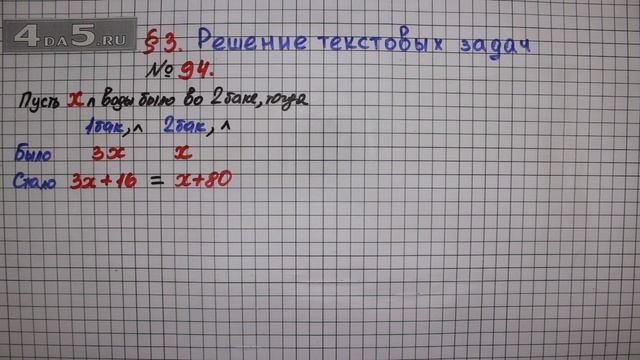 4DA5.RU
§3. Решение текстовых задач
№94.
Пусть x л воды было во 2 баке, тогда
1бак, л 2бак, л
Было 3x x
Стало 3x+16 = x+80